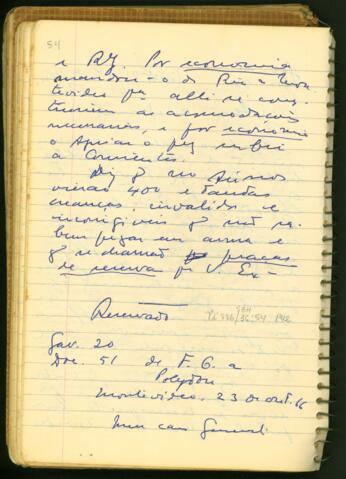 54
e RJ. Por economia
mandou-o do Rio a Mon
tevideo pª alli se cons
truirem as acomodações
necessarias, e por economia
o Apa fez subir
a Corrientes.
Diz q no
virão 400 e tantas
crianças, invalidos e
incorrigiveis q não sa
bem pegar em arma e
q se chamão praças
de reserva pr V. Ex -
Reservado
Gav. 20
Doc. 51 de F. G. a
Polydoro
Montevideo, 23 de out. 66
Meu caro General